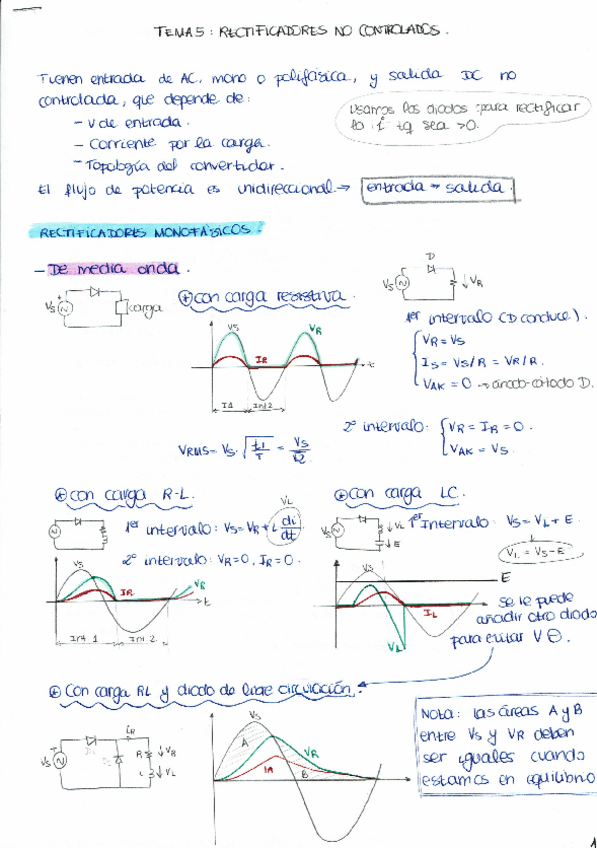 TEMA 5: RECTIFICADORES NO CONTROLADOS.
Tienen entrada de AC, mono o polifásica, y salida DC no
controlada, que depende de:
- V de entrada.
- Corriente por la carga.
- Topología del convertidor.
Usamos los diodos para rectificar
la i tq sea >0.
El flujo de potencia es unidireccional → entrada → salida.
RECTIFICADORES MONOFÁSICOS.
- De media onda.
Vs
carga
con carga resistiva.
Vs VR
IR
t
I1 Int 2
D
Vs VR
1er intervalo (D conduce).
VR = Vs
Is = Vs/R = VR/R.
VAK = 0 → ánodo-cátodo D.
VRMS = Vs · √t1/T = Vs/√2.
2º intervalo: VR = IR = 0.
VAK = Vs.
con carga R-L.
VL
1er intervalo: Vs = VR + L di/dt
2º intervalo: VR = 0, IR = 0.
Vs
IR
VR
t
Int 1 Int 2
con carga LC.
Vs VL
E
1er Intervalo: Vs = VL + E
VL = Vs - E
Vs
E
IL
VL
se le puede
añadir otro diodo
para evitar V ⊖.
con carga RL y diodo de libre circulación.
Vs
iR
R VR
L VL
Vs
A
VR
IR
B
Nota: las áreas A y B
entre Vs y VR deben
ser iguales cuando
estamos en equilibrio
1